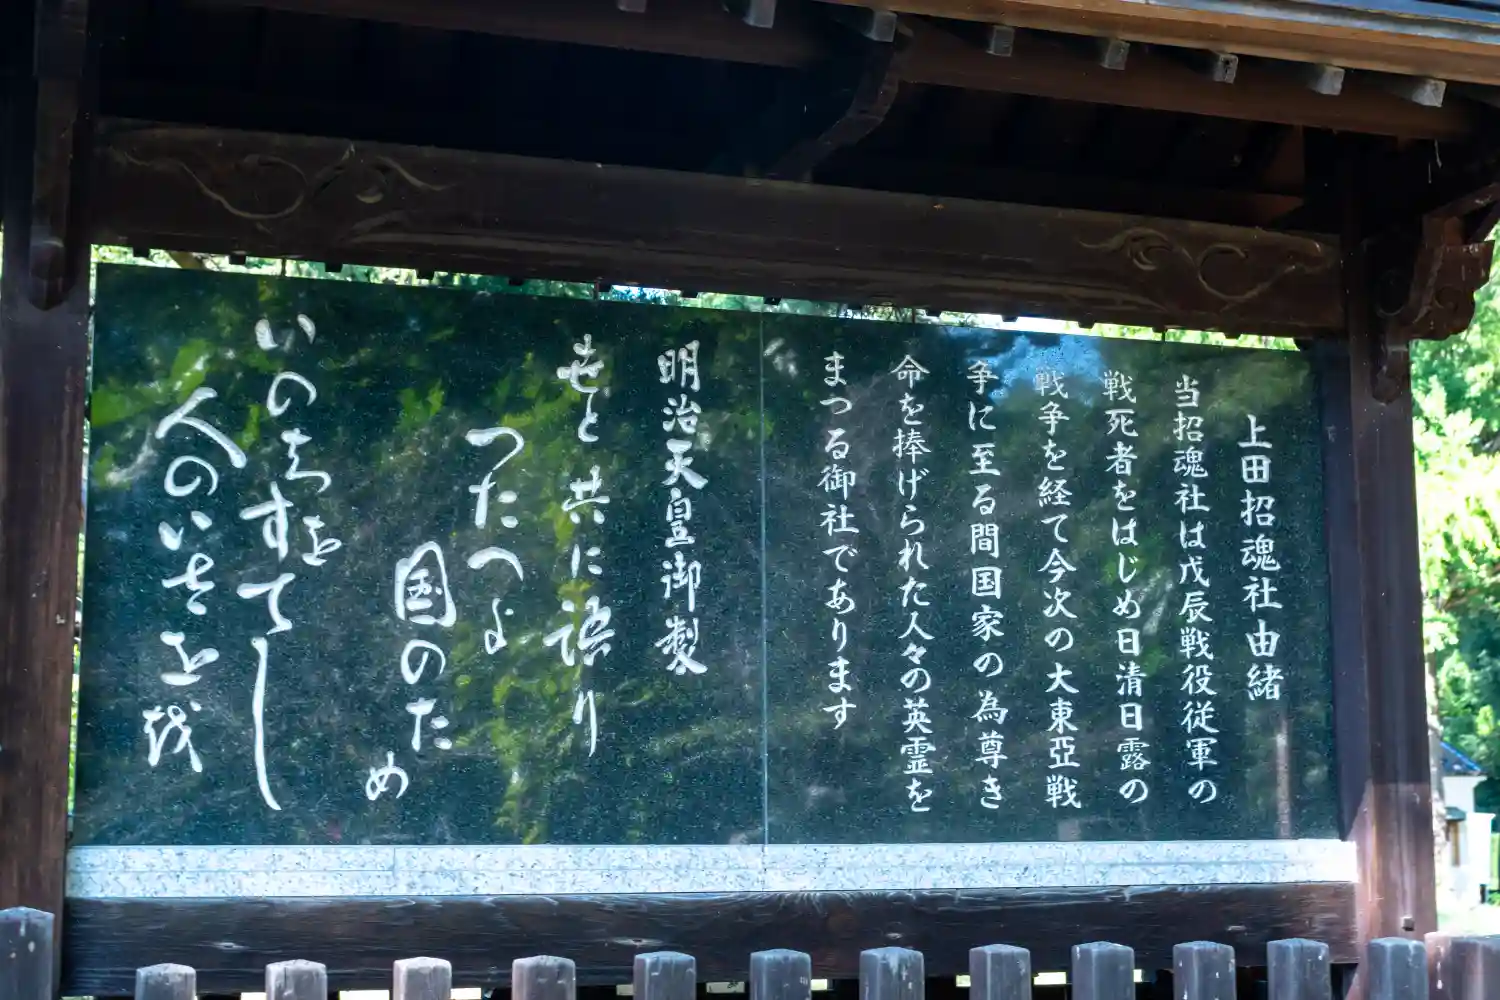 上田招魂社由緒
当招魂社は戊辰戦役従軍の
戦死者をはじめ日清日露の
戦争を経て今次の大東亞戦
争に至る間国家の為尊き
命を捧げられた人々の英霊を
まつる御社であります
明治天皇御製
世と共に語り
つたへよ
国のため
いのちをすてし
人のいさを越